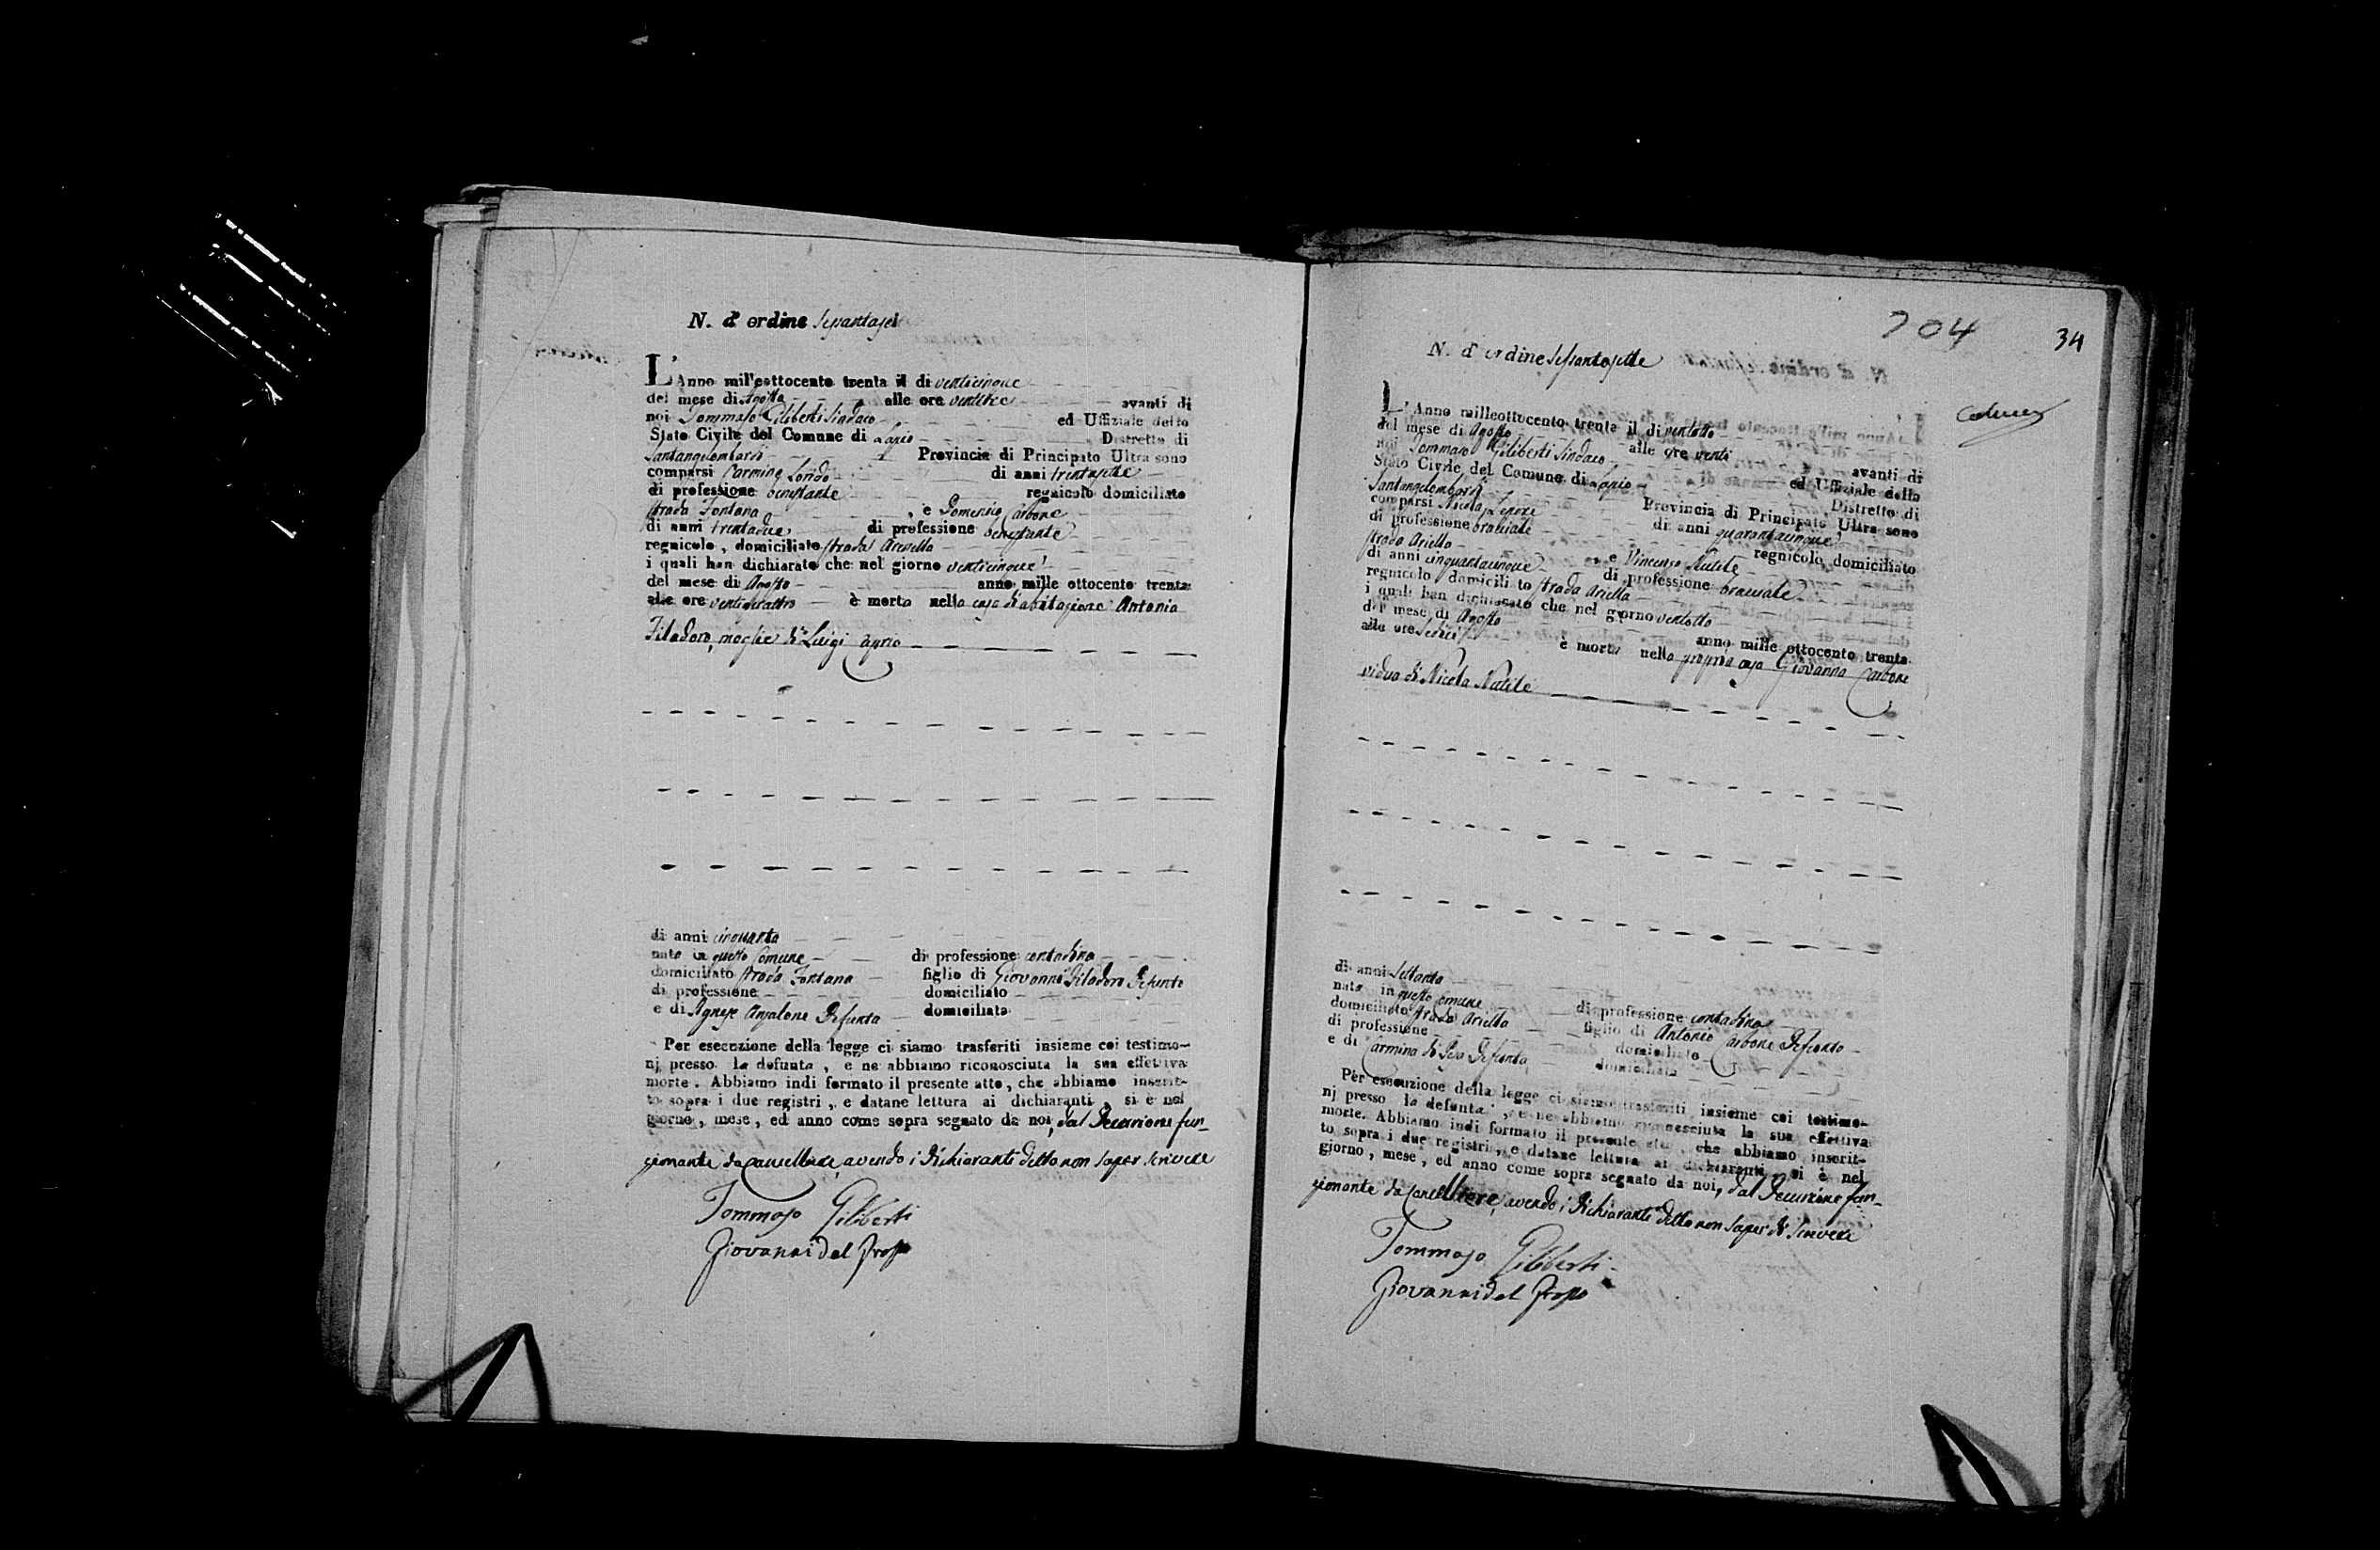 N. d'ordine Sessantasei
L'Anno mill'eottocento trenta il di venticinque
del mese di Agosto alle ore ventitrè avanti di
noi Tommaso Giliberti Sindaco ed Uffiziale dello
Stato Civile del Comune di Lapio Distretto di
Santangelombardi Provincia di Principato Ultra sono
comparsi Carmine Londo di anni trentasette
di professione benestante regnicolo domiciliato
strada Fontana , e Domenico Carbone
di anni trentadue di professione benestante
regnicolo, domiciliato strada Ariella
i quali han dichiarato che nel giorno venticinque
del mese di Agosto anno mille ottocento trenta
alle ore è morta nella casa d'abitazione Antonia
Filadoro, moglie di Luigi
di anni cinquanta
nata in questo Comune di professione contadina
domiciliato strada Fontana figlia di Giovanni Filadoro Defunto
di professione domiciliato
e di Agnese Anzalone Defunta domiciliata
Per esecuzione della legge ci siamo trasferiti insieme coi testimo-
nj presso la defunta, e ne abbiamo riconosciuta la sua effettiva
morte. Abbiamo indi formato il presente atto, che abbiamo inserit-
to sopra i due registri, e datane lettura ai dichiaranti, si è nel
giorno, mese, ed anno come sopra segnato da noi, dal Decurione fun-
zionante da Cancelliere, avendo i Dichiaranti detto non saper scrivere
Tommaso Giliberti
Giovanni del Grosso
704 34
N. d'ordine Sessantasette
L'Anno milleottocento trenta il di ventotto
del mese di Agosto alle ore venti avanti di
noi Tommaso Giliberti Sindaco ed Uffiziale dello
Stato Civile del Comune di Lapio Distretto di
Santangelombardi Provincia di Principato Ultra sono
comparsi Nicola Lepore di anni quarantacinque
di professione bracciale regnicolo, domiciliato
strada Ariella e Vincenzo
di anni cinquantacinque di professione bracciale
regnicolo domiciliato strada Ariella
i quali han dichiarato che nel giorno ventotto
del mese di Agosto anno mille ottocento trenta
alle ore sedici è morta nella propria casa Giovanna Carbone
vidua di Nicola Natile
di anni settanta
nata in questo Comune di professione contadina
domiciliato strada Ariella figlia di Antonio Carbone Defunto
di professione domiciliato
e di Carmina di Defunta domiciliata
Per esecuzione della legge ci siamo trasferiti insieme coi testimo-
nj presso la defunta, e ne abbiamo riconosciuta la sua effettiva
morte. Abbiamo indi formato il presente atto, che abbiamo inserit-
to sopra i due registri, e datane lettura ai dichiaranti, si è nel
giorno, mese, ed anno come sopra segnato da noi, dal Decurione fun-
zionante da Cancelliere, avendo i Dichiaranti detto non saper di scrivere
Tommaso Giliberti
Giovanni del Grosso